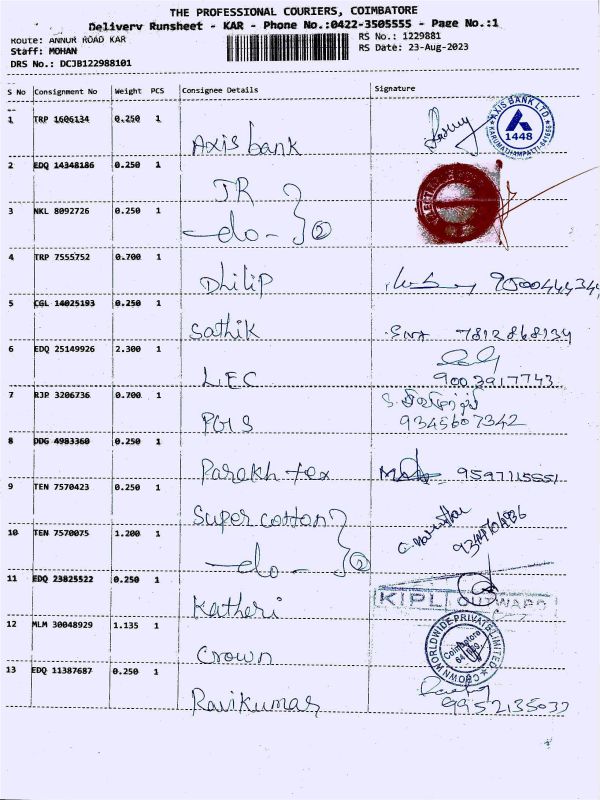 THE PROFESSIONAL COURIERS, COIMBATORE
Delivery Runsheet - KAR - Phone No.:0422-3505555 - Page No.:1
Route: ANNUR ROAD KAR
Staff: MOHAN
DRS No.: DCJB122988101
RS No.: 1229881
RS Date: 23-Aug-2023
S No Consignment No Weight PCS Consignee Details Signature
1 TRP 1606134 0.250 1 Axis bank
AXIS BANK LTD
1448
2 EDQ 14348186 0.250 1 JR
3 NKL 8092726 0.250 1 -do- } 2
4 TRP 7555752 0.700 1 Dhilip
5 CGL 14025193 0.250 1 Sathik 7812868134
6 EDQ 25149926 2.300 1 LEC 9003917743
7 RJP 3206736 0.700 1 PGLS 9345607342
8 DDG 4983360 0.250 1 Parekh tex 9597115551
9 TEN 7570423 0.250 1 Super cotton
10 TEN 7570075 1.200 1 -do- } 2
11 EDQ 23825522 0.250 1 Katheri
KIPL OUTWARD
12 MLM 30048929 1.135 1 Crown
CROWN WORLDWIDE PRIVATE LIMITED
Coimbatore
13 EDQ 11387687 0.250 1 Ravikumar 9952135033